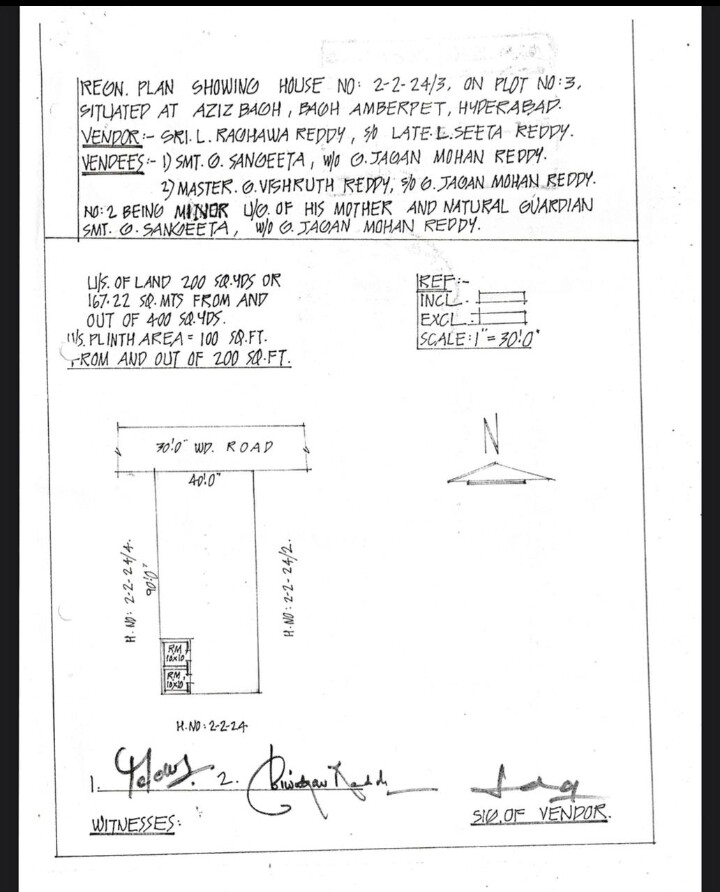 REGN. PLAN SHOWING HOUSE NO: 2-2-24/3, ON PLOT NO: 3,
SITUATED AT AZIZ BAGH, BAGH AMBERPET, HYDERABAD.
VENDOR:- SRI. L. RAGHAWA REDDY, S/O LATE. L. SEETA REDDY.
VENDEES:- 1) SMT. G. SANGEETA, W/O G. JAGAN MOHAN REDDY.
2) MASTER. G. VISHRUTH REDDY, S/O G. JAGAN MOHAN REDDY.
NO: 2 BEING MINOR U/G. OF HIS MOTHER AND NATURAL GUARDIAN
SMT. G. SANGEETA, W/O G. JAGAN MOHAN REDDY.
U/S. OF LAND 200 SQ.YDS OR
167.22 SQ. MTS FROM AND
OUT OF 400 SQ.YDS.
U/S. PLINTH AREA = 100 SQ.FT.
FROM AND OUT OF 200 SQ.FT.
REF:-
INCL.
EXCL.
SCALE: 1" = 30'.0"
30'.0" WD. ROAD
N
40'.0"
H. NO: 2-2-24/4.
90'.0"
H. NO: 2-2-24/2.
RM
10X10
RM
10X10
H. NO: 2-2-24
1. 2.
WITNESSES:
SIG. OF VENDOR.